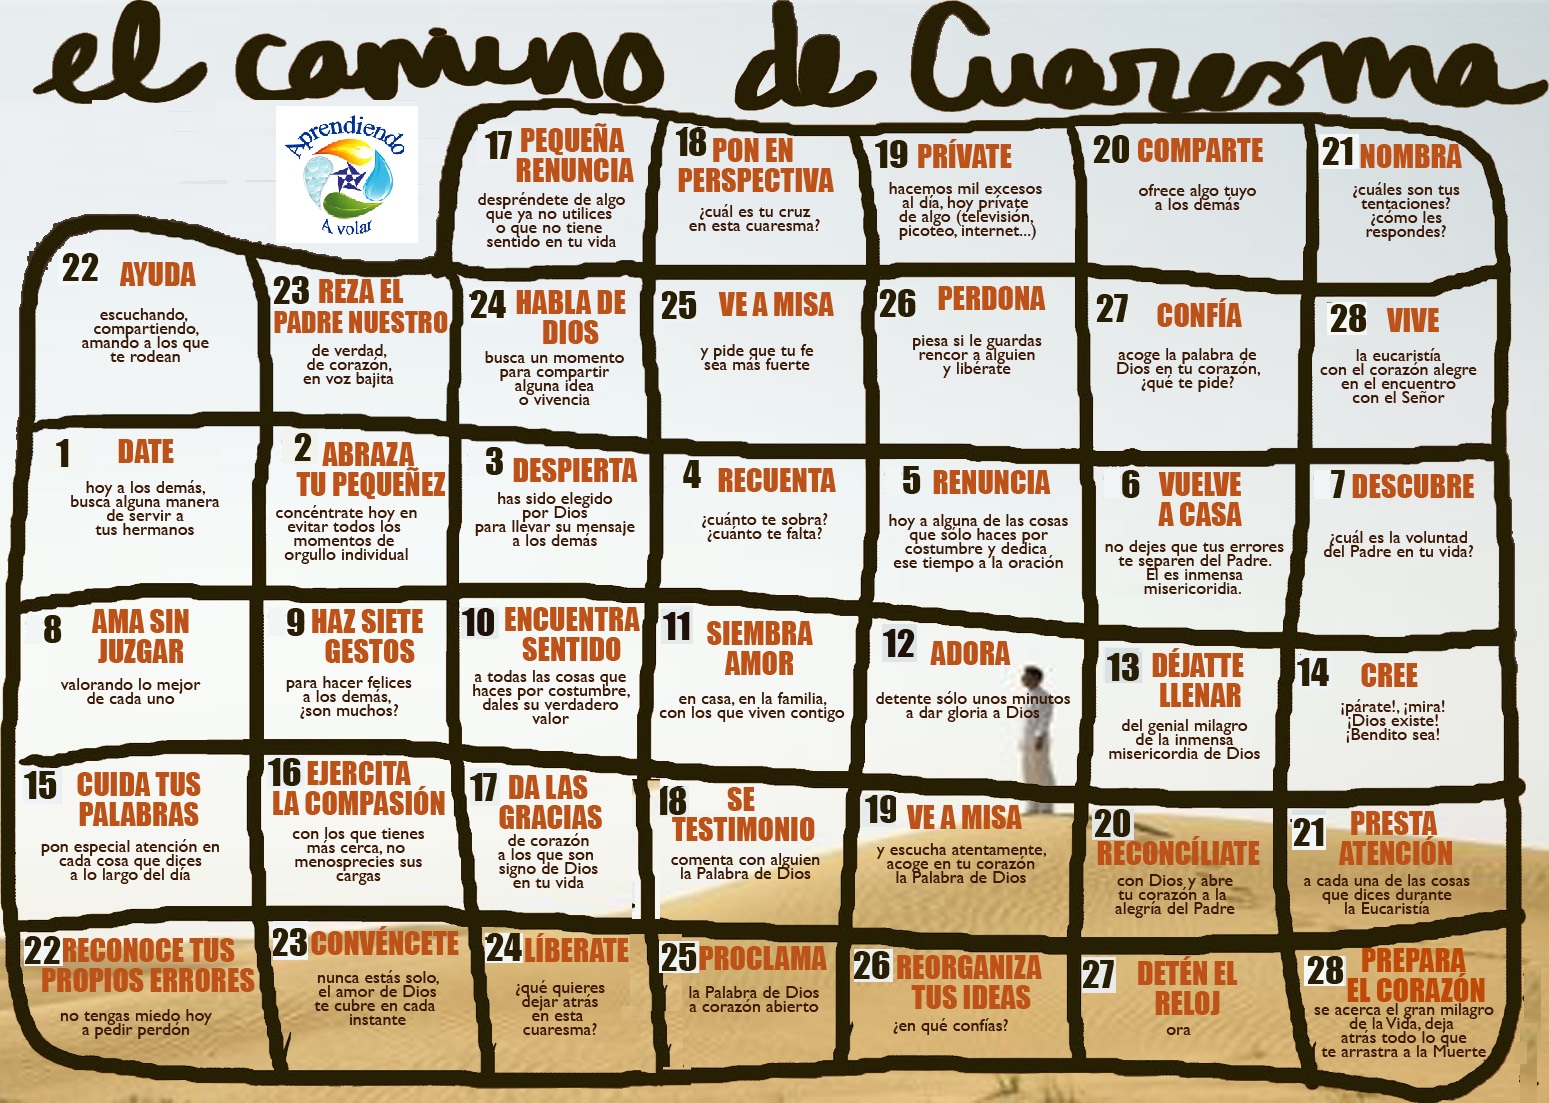 el camino de Cuaresma
Aprendiendo
A volar
17 PEQUEÑA
RENUNCIA
despréndete de algo
que ya no utilices
o que no tiene
sentido en tu vida
18 PON EN
PERSPECTIVA
¿cuál es tu cruz
en esta cuaresma?
19 PRÍVATE
hacemos mil excesos
al día, hoy prívate
de algo (televisión,
picoteo, internet...)
20 COMPARTE
ofrece algo tuyo
a los demás
21 NOMBRA
¿cuáles son tus
tentaciones?
¿cómo les
respondes?
22 AYUDA
escuchando,
compartiendo,
amando a los que
te rodean
23 REZA EL
PADRE NUESTRO
de verdad,
de corazón,
en voz bajita
24 HABLA DE
DIOS
busca un momento
para compartir
alguna idea
o vivencia
25 VE A MISA
y pide que tu fe
sea más fuerte
26 PERDONA
piesa si le guardas
rencor a alguien
y libérate
27 CONFÍA
acoge la palabra de
Dios en tu corazón,
¿qué te pide?
28 VIVE
la eucaristía
con el corazón alegre
en el encuentro
con el Señor
1 DATE
hoy a los demás,
busca alguna manera
de servir a
tus hermanos
2 ABRAZA
TU PEQUEÑEZ
concéntrate hoy en
evitar todos los
momentos de
orgullo individual
3 DESPIERTA
has sido elegido
por Dios
para llevar su mensaje
a los demás
4 RECUENTA
¿cuánto te sobra?
¿cuánto te falta?
5 RENUNCIA
hoy a alguna de las cosas
que sólo haces por
costumbre y dedica
ese tiempo a la oración
6 VUELVE
A CASA
no dejes que tus errores
te separen del Padre.
El es inmensa
misericoridia.
7 DESCUBRE
¿cuál es la voluntad
del Padre en tu vida?
8 AMA SIN
JUZGAR
valorando lo mejor
de cada uno
9 HAZ SIETE
GESTOS
para hacer felices
a los demás,
¿son muchos?
10 ENCUENTRA
SENTIDO
a todas las cosas que
haces por costumbre,
dales su verdadero
valor
11 SIEMBRA
AMOR
en casa, en la familia,
con los que viven contigo
12 ADORA
detente sólo unos minutos
a dar gloria a Dios
13 DÉJATTE
LLENAR
del genial milagro
de la inmensa
misericordia de Dios
14 CREE
¡párate!, ¡mira!
¡Dios existe!
¡Bendito sea!
15 CUIDA TUS
PALABRAS
pon especial atención en
cada cosa que dices
a lo largo del día
16 EJERCITA
LA COMPASIÓN
con los que tienes
más cerca, no
menosprecies sus
cargas
17 DA LAS
GRACIAS
de corazón
a los que son
signo de Dios
en tu vida
18 SE
TESTIMONIO
comenta con alguien
la Palabra de Dios
19 VE A MISA
y escucha atentamente,
acoge en tu corazón
la Palabra de Dios
20
RECONCÍLIATE
con Dios y abre
tu corazón a la
alegría del Padre
21 PRESTA
ATENCIÓN
a cada una de las cosas
que dices durante
la Eucaristía
22 RECONOCE TUS
PROPIOS ERRORES
no tengas miedo hoy
a pedir perdón
23 CONVÉNCETE
nunca estás solo,
el amor de Dios
te cubre en cada
instante
24 LÍBERATE
¿qué quieres
dejar atrás
en esta
cuaresma?
25 PROCLAMA
la Palabra de Dios
a corazón abierto
26 REORGANIZA
TUS IDEAS
¿en qué confías?
27 DETÉN EL
RELOJ
ora
28 PREPARA
EL CORAZÓN
se acerca el gran milagro
de la Vida, deja
atrás todo lo que
te arrastra a la Muerte